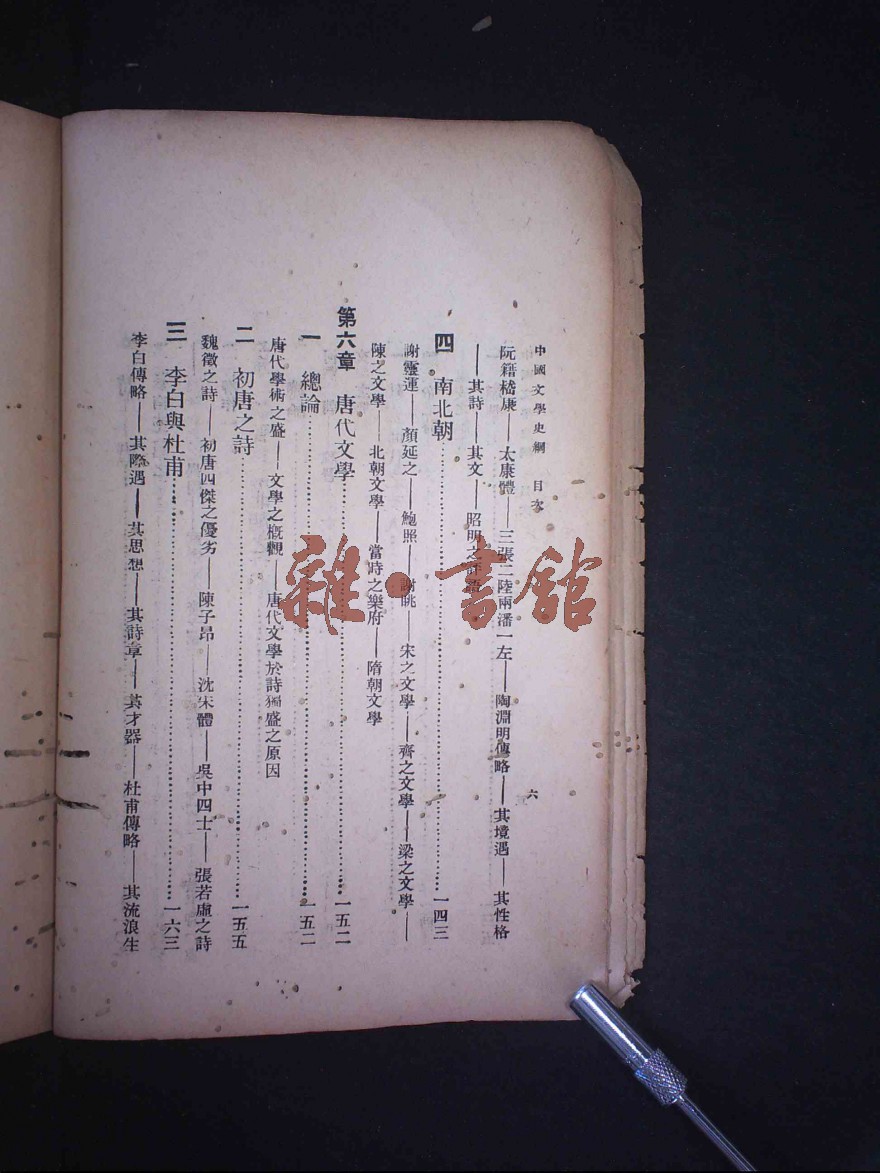 中國文學史綱　目次　六
阮籍嵇康——太康體——三張二陸兩潘一左——陶淵明傳略——其境遇——其性格
——其詩——其文——昭明之評語
四　南北朝……一四三
謝靈運——顏延之——鮑照——謝眺——宋之文學——齊之文學——梁之文學——
陳之文學——北朝文學——當時之樂府——隋朝文學
第六章　唐代文學……一五二
一　總論……一五二
唐代學術之盛——文學之概觀——唐代文學於詩獨盛之原因
二　初唐之詩……一五五
魏徵之詩——初唐四傑之優劣——陳子昂——沈宋體——吳中四士——張若虛之詩
三　李白與杜甫……一六三
李白傳略——其際遇——其思想——其詩章——其才器——杜甫傳略——其流浪生
雜·書館